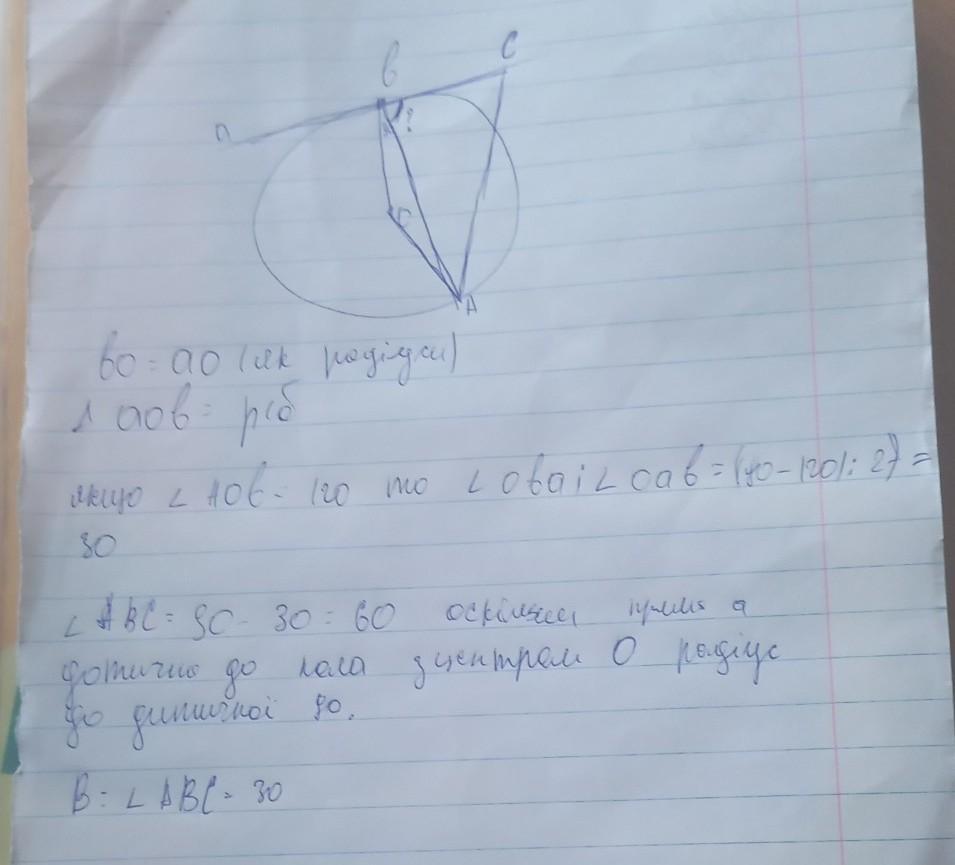 B C
a ?
O
A
BO = AO (як радіуси)
Δ AOB = р/б
якщо ∠ AOB = 120 то ∠ OBA і ∠ OAB = (180 - 120) : 2) =
30
∠ ABC = 90 - 30 = 60 оскільки пряма a
дотична до кола з центром O радіус
до дотичної 90.
В: ∠ ABC = 30